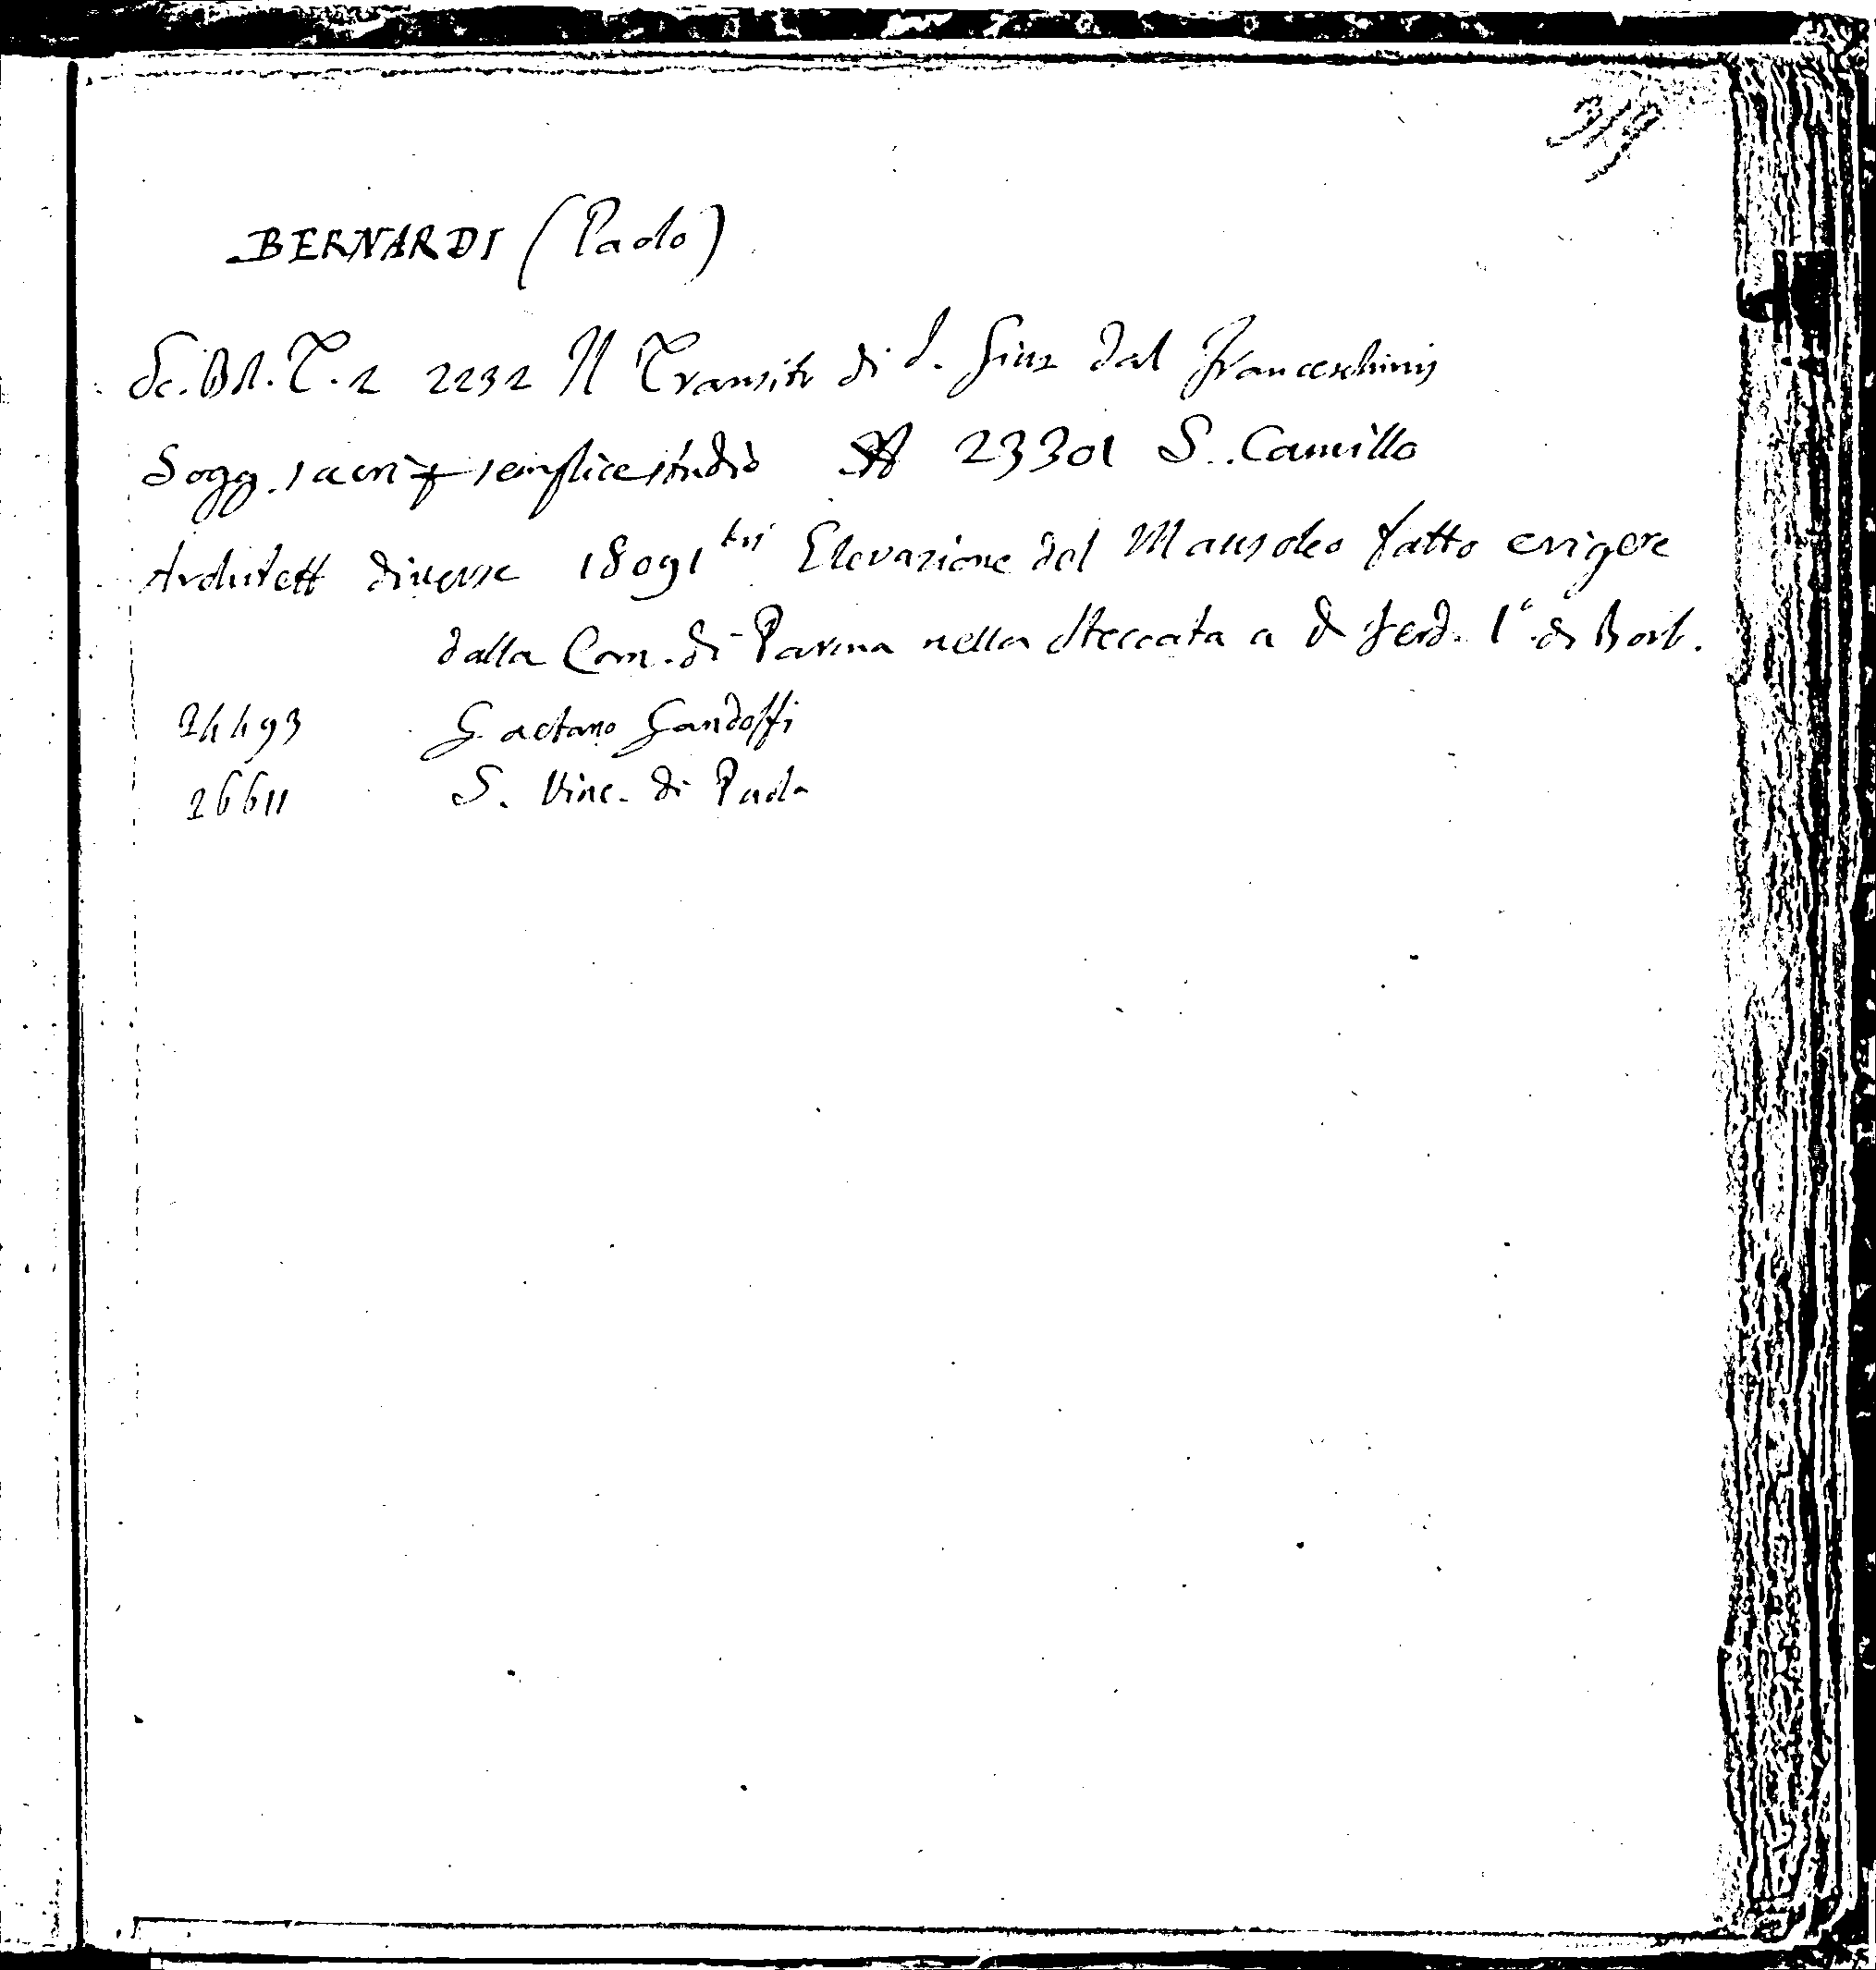 317
BERNARDI (Paolo)
Sc. Bol. T. 2 2232 Il Transito di S. Gius dal Franceschinij
Sogg. sacri semplice studio 23301 S. Camillo
Architett diverse 18091 bis Elevazione del Mausoleo fatto erigere
dalla Com. di Parma nella Steccata a D Ferd. 1º di Borb.
24493 Gaetano Gandolfi
26611 S. Vinc. di Paola